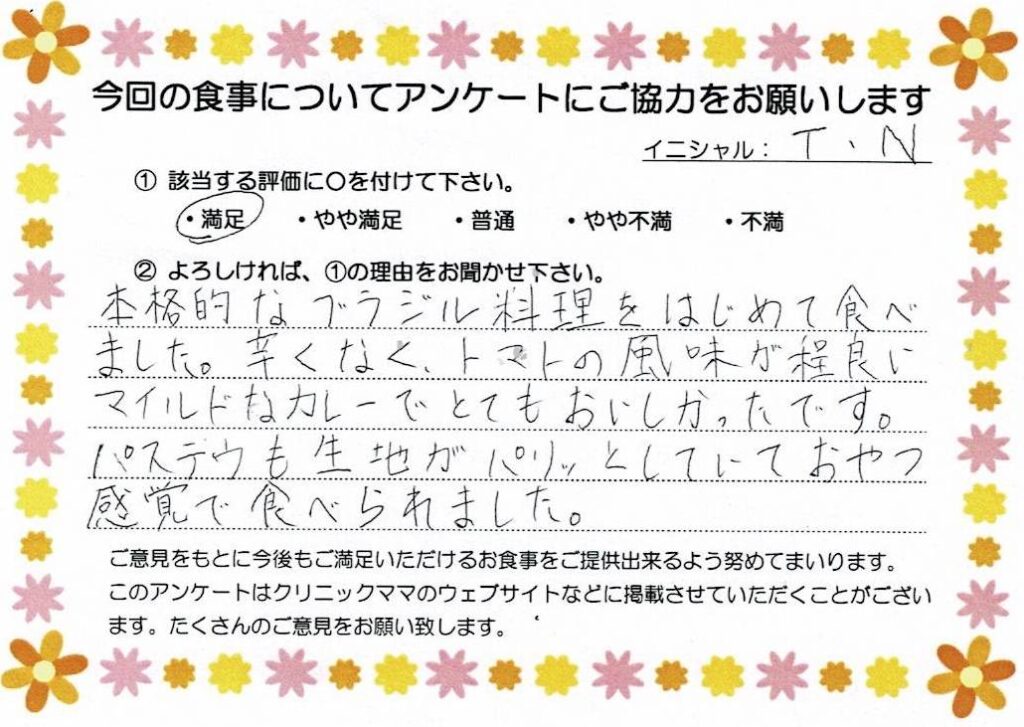 今回の食事についてアンケートにご協力をお願いします
イニシャル： T、N
① 該当する評価に〇を付けて下さい。
・満足 ・やや満足 ・普通 ・やや不満 ・不満
② よろしければ、①の理由をお聞かせ下さい。
本格的なブラジル料理をはじめて食べ
ました。辛くなく、トマトの風味が程良い
マイルドなカレーでとてもおいしかったです。
パステウも生地がパリッとしていておやつ
感覚で食べられました。
ご意見をもとに今後もご満足いただけるお食事をご提供出来るよう努めてまいります。
このアンケートはクリニックママのウェブサイトなどに掲載させていただくことがござい
ます。たくさんのご意見をお願い致します。